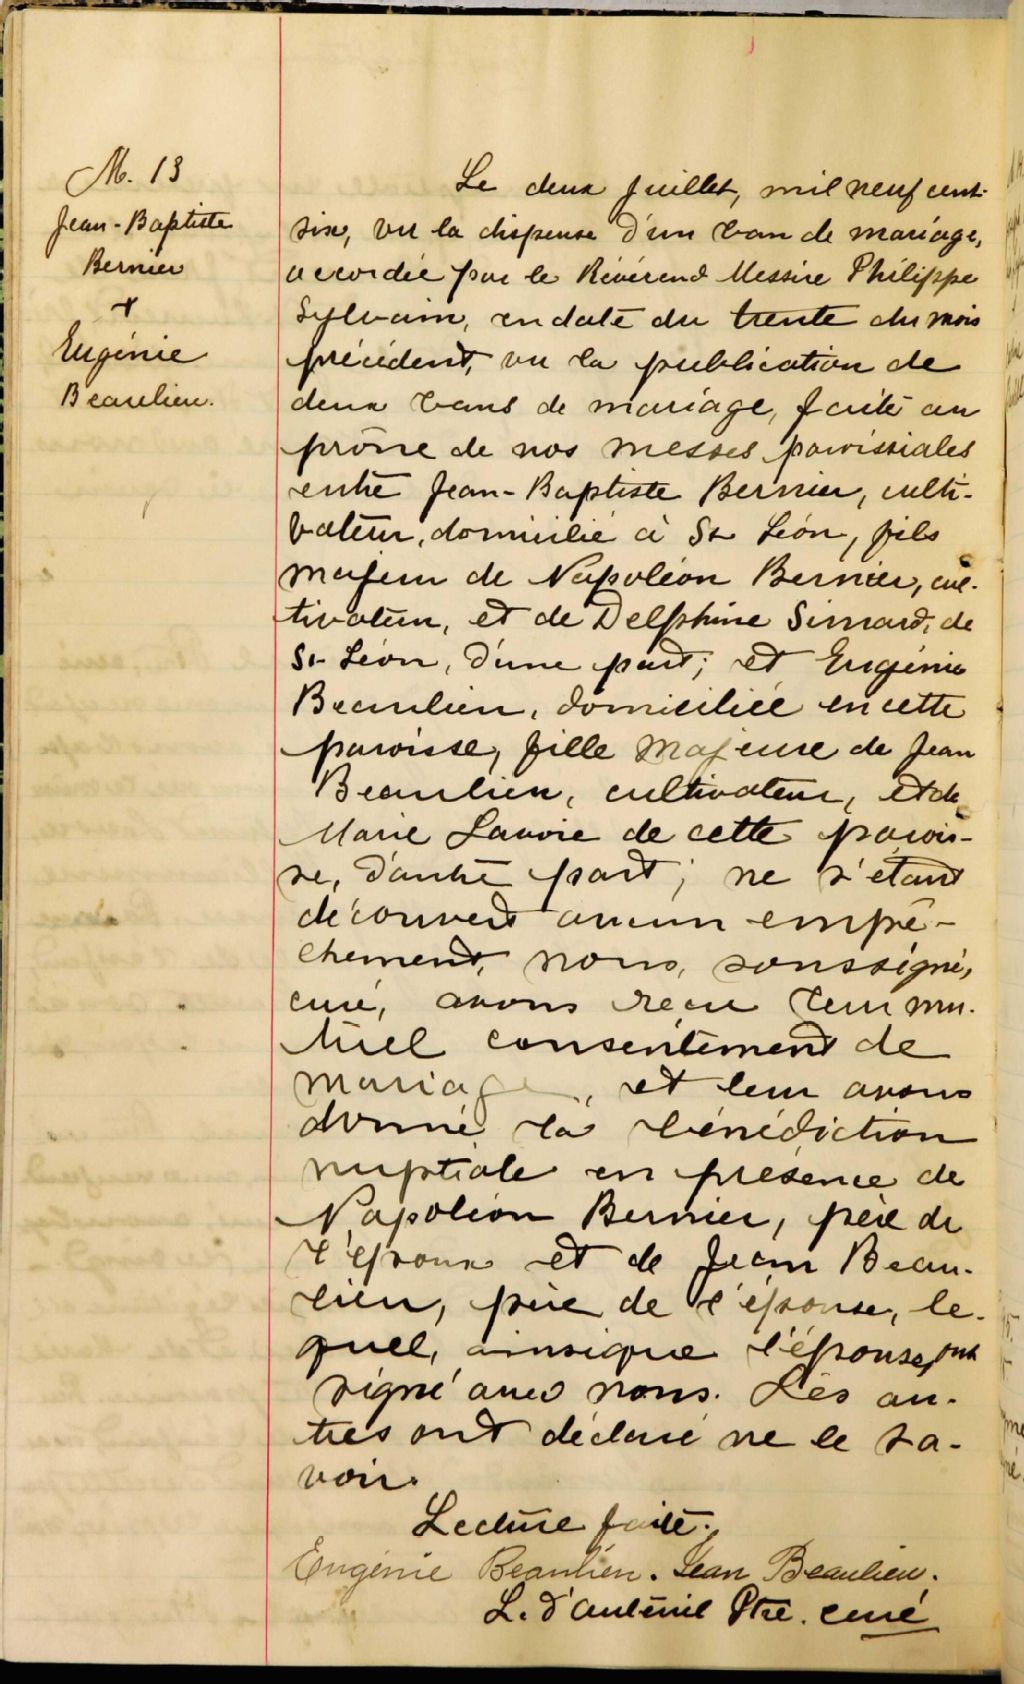 M. 13
Jean-Baptiste
Bernier
+
Eugénie
Beaulieu.
Le deux Juillet, mil neuf cent
six, vu la dispense d'un ban de mariage,
accordée par le Révérend Messire Philippe
Sylvain, en date du trente du mois
précédent, vu la publication de
deux bans de mariage, faite au
prône de nos messes paroissiales
entre Jean-Baptiste Bernier, culti-
vateur, domicilié à St Léon, fils
majeur de Napoléon Bernier, cul-
tivateur, et de Delphine Simard, de
St Léon, d'une part; et Eugénie
Beaulieu, domiciliée en cette
paroisse, fille majeure de Jean
Beaulieu, cultivateur, et de
Marie Lavoie de cette parois-
se, d'autre part; ne s'étant
découvert aucun empê-
chement, nous, soussigné,
curé, avons reçu leur mu-
tuel consentement de
mariage, et leur avons
donné la bénédiction
nuptiale en présence de
Napoléon Bernier, père de
l'époux et de Jean Beau-
lieu, père de l'épouse, le-
quel, ainsique l'épouse, ont
signé avec nous. Les au-
tres ont déclaré ne le sa-
voir.
Lecture faite.
Eugénie Beaulieu. Jean Beaulieu.
L. d'Auteuil Ptre. curé